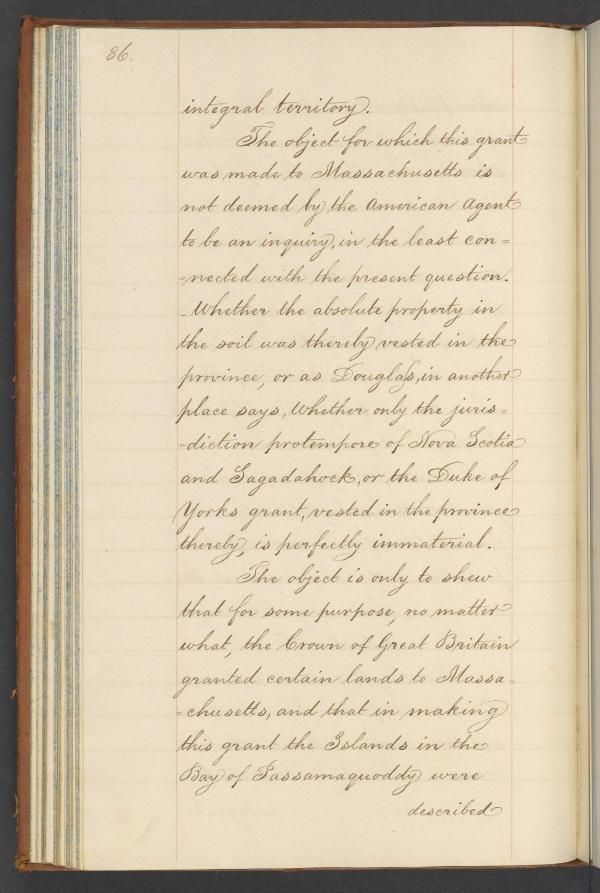 86.
integral territory.
The object for which this grant
was made to Massachusetts is
not deemed by the American Agent
to be an inquiry, in the least con=
=nected with the present question.
_Whether the absolute property in
the soil was thereby vested in the
province, or as Douglass, in another
place says, Whether only the juris=
=diction protempore of Nova Scotia
and Sagadahock, or the Duke of
Yorks grant, vested in the province
thereby, is perfectly immaterial.
The object is only to shew
that for some purpose, no matter
what, the Crown of Great Britain
granted certain lands to Massa=
=chusetts, and that in making
this grant the Islands in the
Bay of Passamaquoddy were
described